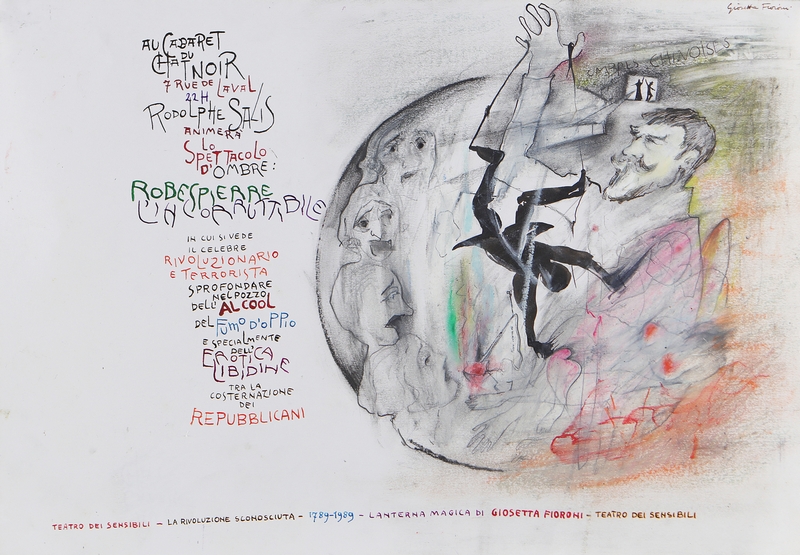 Giosetta Fioroni
OMBRES CHINOISES
AU CABARET
DU
CHAT NOIR
7 RUE DE LAVAL
22H
RODOLPHE SALIS
ANIMERÀ
LO
SPETTACOLO
D'OMBRE:
ROBESPIERRE
L'INCORRUTTIBILE
IN CUI SI VEDE
IL CELEBRE
RIVOLUZIONARIO
E TERRORISTA
SPROFONDARE
NEL POZZO
DELL'ALCOOL
DEL FUMO D'OPPIO
E SPECIALMENTE
DELL'
EROTICA
LIBIDINE
TRA LA
COSTERNAZIONE
DEI
REPUBBLICANI
TEATRO DEI SENSIBILI – LA RIVOLUZIONE SCONOSCIUTA – 1789-1989 – LANTERNA MAGICA DI GIOSETTA FIORONI – TEATRO DEI SENSIBILI